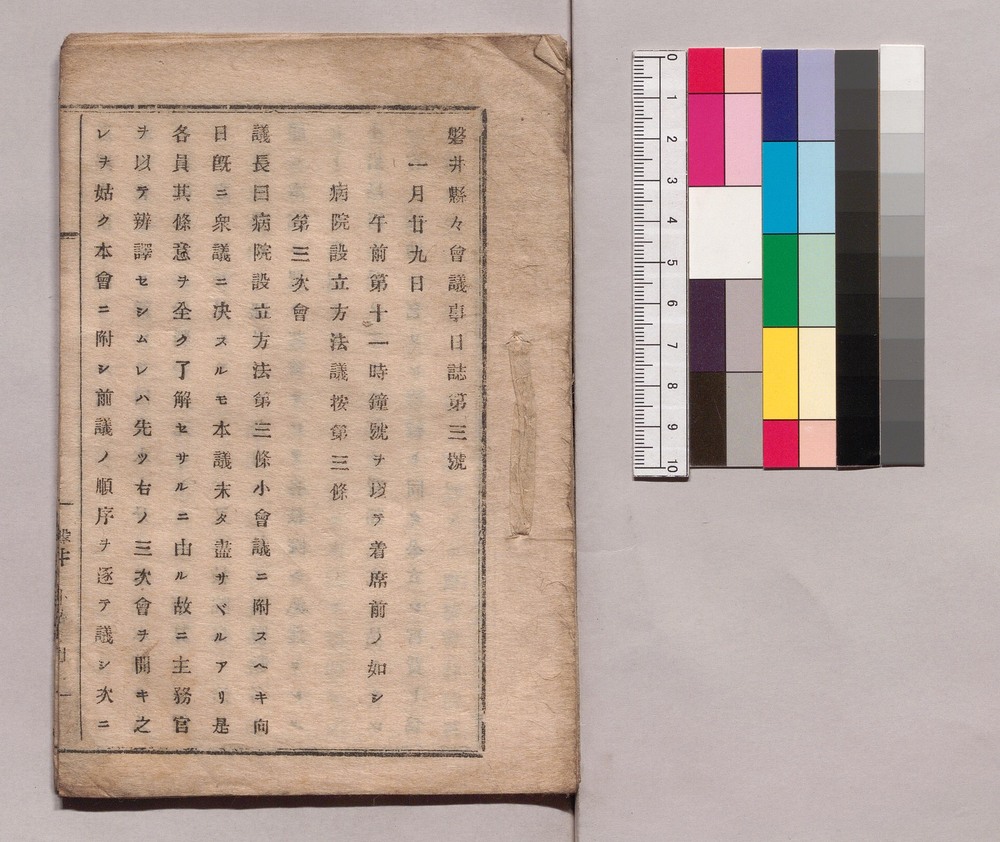 磐井縣々會議事日誌第三號
一月廿九日
午前第十一時鐘號ヲ以テ着席前ノ如シ
病院設立方法議按第三條
第三次會
議長曰病院設立方法第三條小會議ニ附スヘキ向
日既ニ衆議ニ决スルモ本議未タ盡サヾルアリ是
各員其條意ヲ全ク了解セサルニ由ル故ニ主務官
ヲ以テ辨譯セシムレハ先ツ右ノ三次會ヲ開キ之
レヲ姑ク本會ニ附シ前議ノ順序ヲ逐テ議シ次ニ
0 1 2 3 4 5 6 7 8 9 10